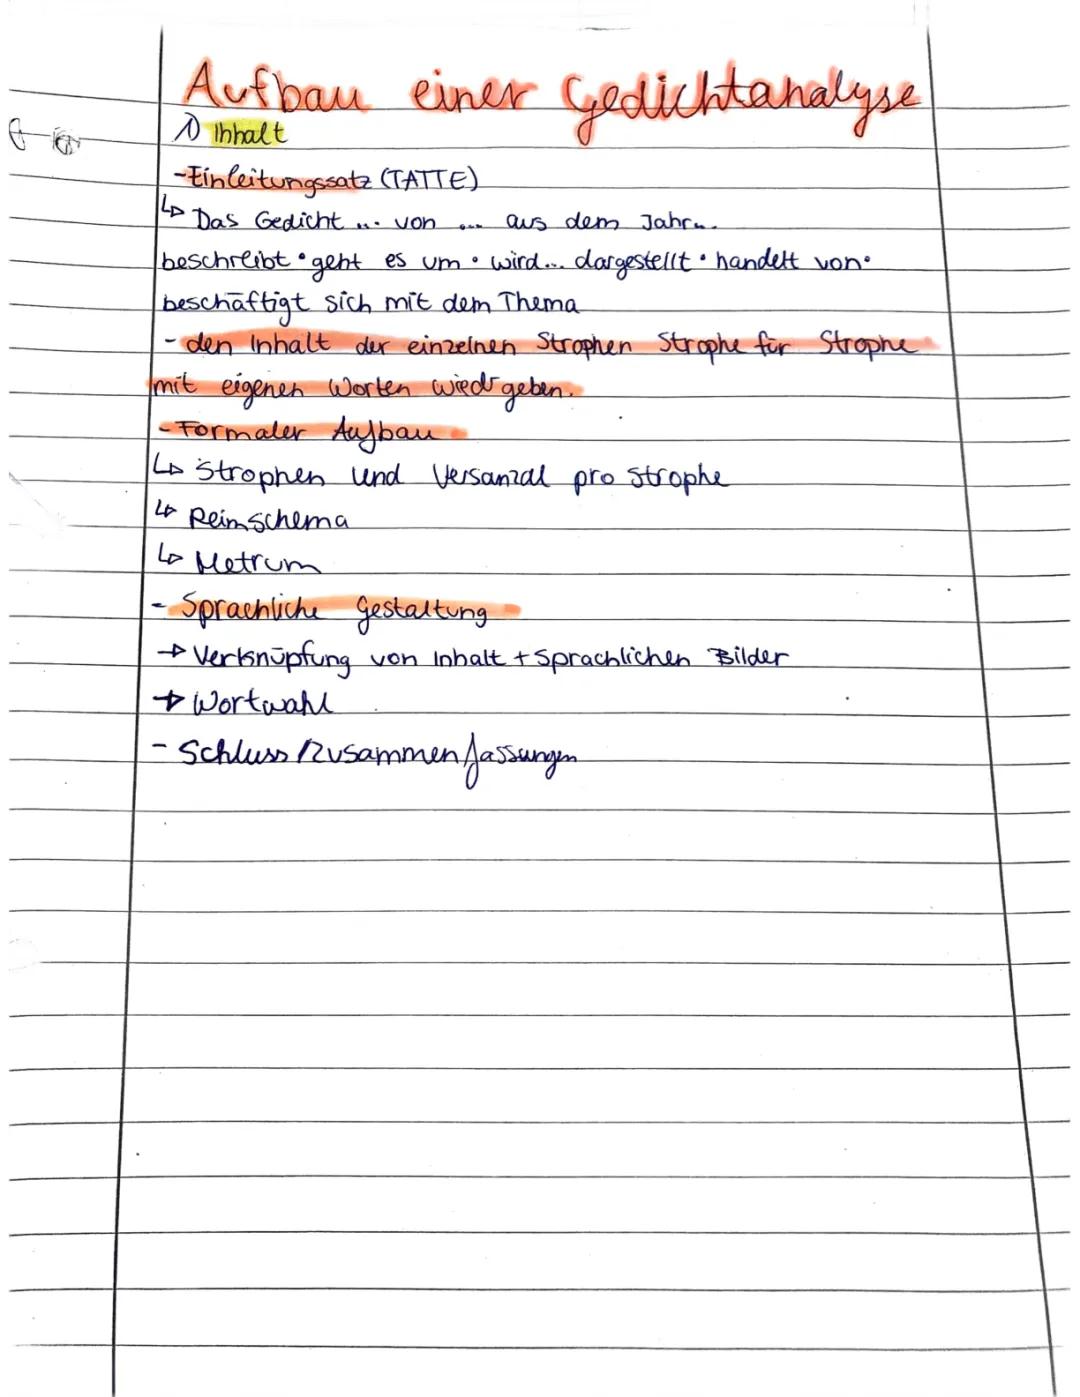 Aufbau einer Gedichtanalyse
1) Inhalt
- Einleitungssatz (TATTE)
↳ Das Gedicht ... von ... aus dem Jahr...
beschreibt • geht es um • wird... dargestellt • handelt von •
beschäftigt sich mit dem Thema
- den Inhalt der einzelnen Strophen Strophe für Strophe
mit eigenen Worten wiedrgeben.
- Formaler Aufbau
↳ Strophen und Versanzal pro Strophe
↳ Reimschema
↳ Metrum
- Sprachliche Gestaltung
→ Verknüpfung von Inhalt + Sprachlichen Bilder
→ Wortwahl
- Schluss/Zusammenfassungen